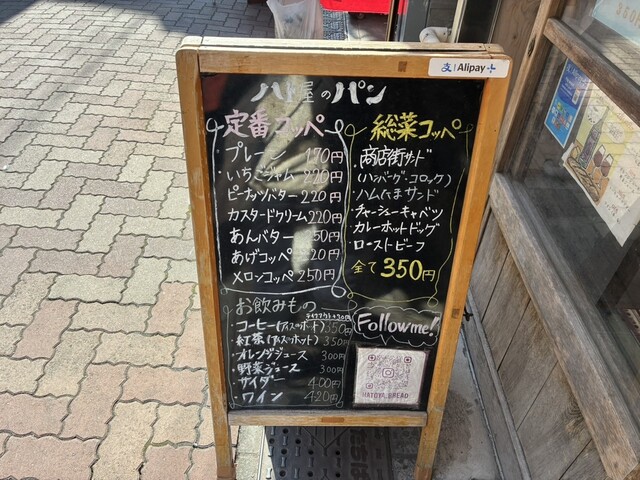 Alipay+
ハト屋のパン
定番コッペ
プレーン 170円
・いちごジャム 220円
ピーナッツバター 220円
カスタードクリーム 220円
あんバター 50円
あげコッペ 20円
メロンコッペ 250円
総菜コッペ
・商店街サンド
(ハンバーグ・コロッケ)
・ハムたまサンド
・チャーシューキャベツ
・カレーホットドッグ
・ローストビーフ
全て350円
お飲みもの
・コーヒー(アイスorホット) 350円
・紅茶(アイスorホット) 350円
・オレンジジュース 300円
・野菜ジュース 300円
・サイダー 400円
・ワイン 420円
Follow me!
HATOYA_BREAD